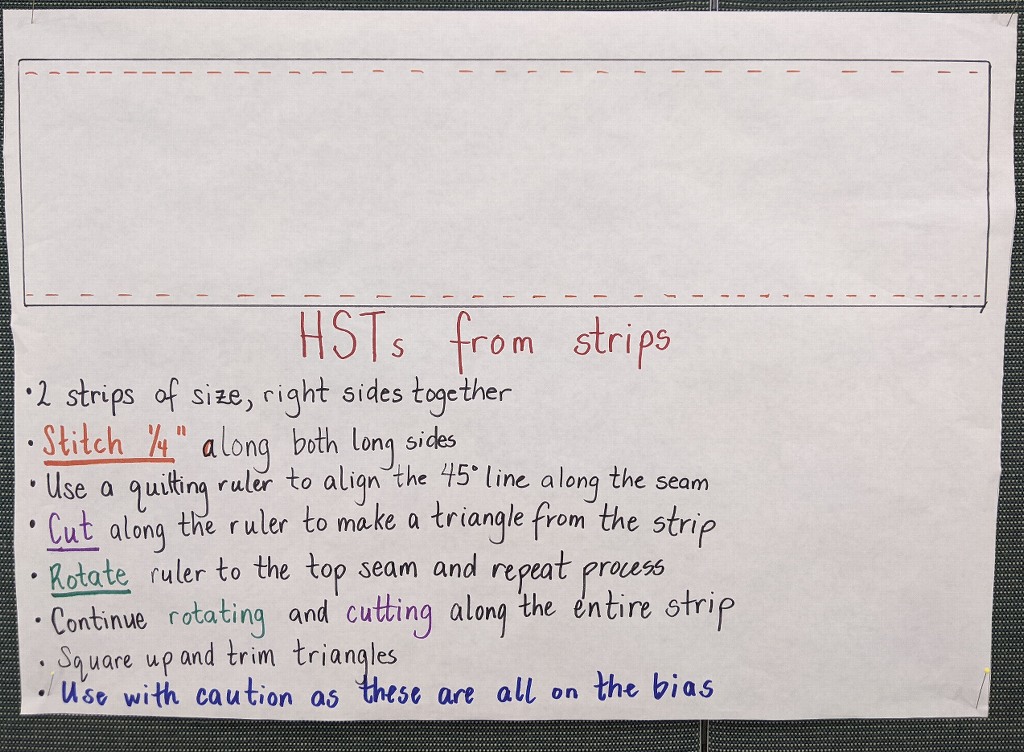 HSTs from strips
·2 strips of size, right sides together
· Stitch 1/4" along both long sides
· Use a quilting ruler to align the 45° line along the seam
· Cut along the ruler to make a triangle from the strip
· Rotate ruler to the top seam and repeat process
· Continue rotating and cutting along the entire strip
· Square up and trim triangles
· Use with caution as these are all on the bias